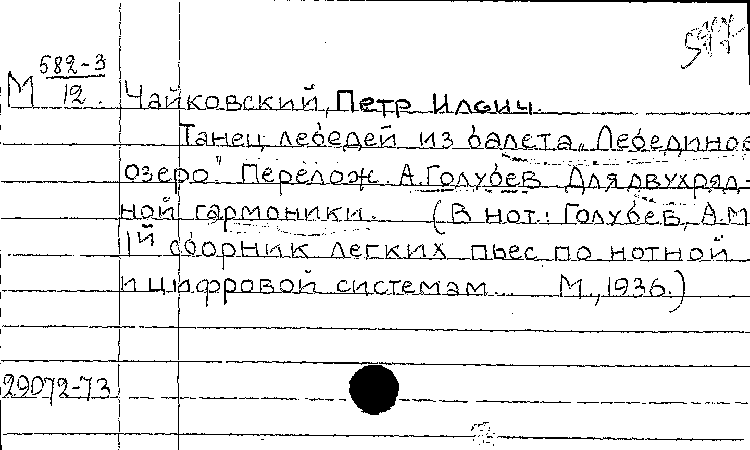 577
М 582-3
12. Чайковский, Петр Ильич.
Танец лебедей из балета „Лебединое
озеро". Перелож. А. Голубев. Для двухряд-
ной гармоники. (В нот.: Голубев, А.М
1й сборник легких пьес по нотной
и цифровой системам... М., 1936.)
29072-73